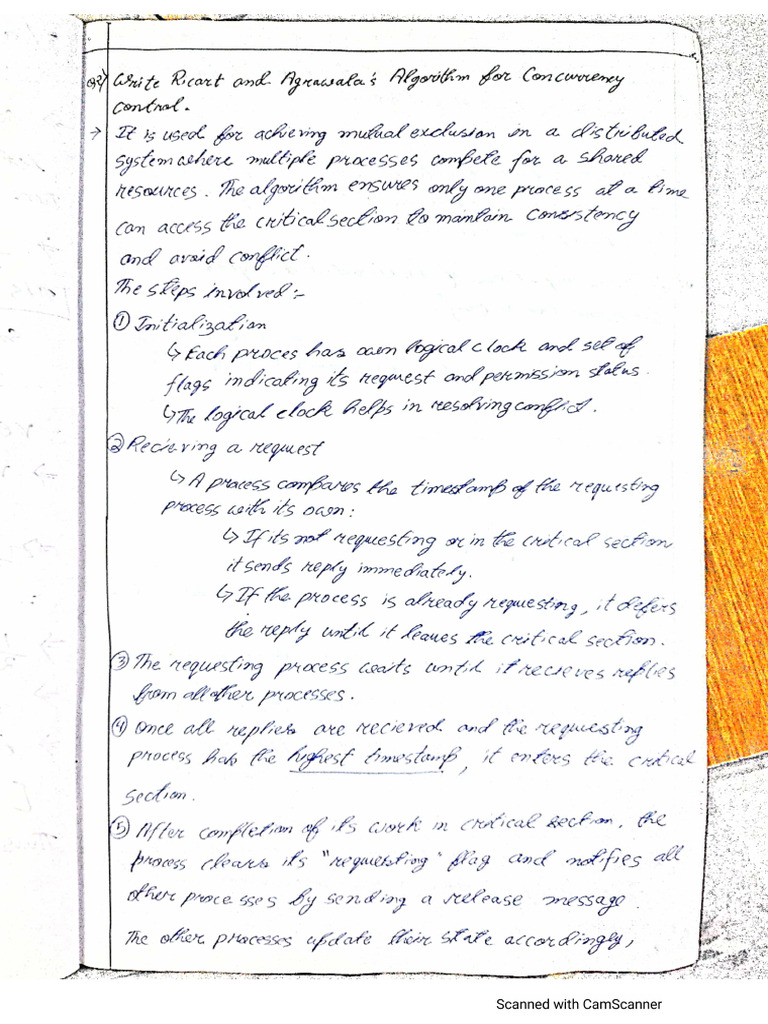 Q2) Write Ricart and Agrawala's Algorithm for Concurrency
control.
→ It is used for achieving mutual exclusion in a distributed
system where multiple processes compete for a shared
resources. The algorithm ensures only one process at a time
can access the critical section to maintain consistency
and avoid conflict.
The steps involved:-
① Initialization
↳ Each proces has own logical clock and set of
flags indicating its request and permission status.
↳ The logical clock helps in resolving conflict.
② Recieving a request
↳ A process compares the timestamp of the requesting
process with its own:
↳ If its not requesting or in the critical section
it sends reply immediately.
↳ If the process is already requesting, it defers
the reply until it leaves the critical section.
③ The requesting process waits until it recieves replies
from all other processes.
④ Once all replies are recieved and the requesting
process has the highest timestamp, it enters the critical
section.
⑤ After completion of its work in critical section, the
process clears its "requesting" flag and notifies all
other processes by sending a release message.
The other processes update their state accordingly,
Scanned with CamScanner